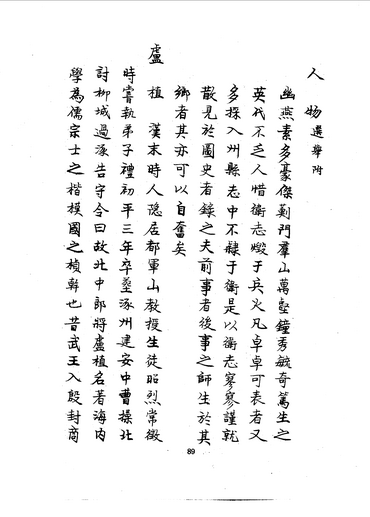 人物選舉附
幽燕素多豪傑薊門羣山萬壑鐘秀毓奇篤生之
英代不乏人惜衛志燬于兵火凡卓卓可表者又
多採入州縣志中不隸于衛是以衛志寥寥謹就
散見於圖史者錄之夫前事者後事之師生於其
鄉者其亦可以自奮矣
盧植 漢末時人隱居都軍山教授生徒昭烈常微
時嘗執弟子禮初平三年卒塟涿州建安中曹操北
討柳城過涿告守令曰故北中郎將盧植名著海內
學為儒宗士之楷模國之楨幹也昔武王入殷封商
89